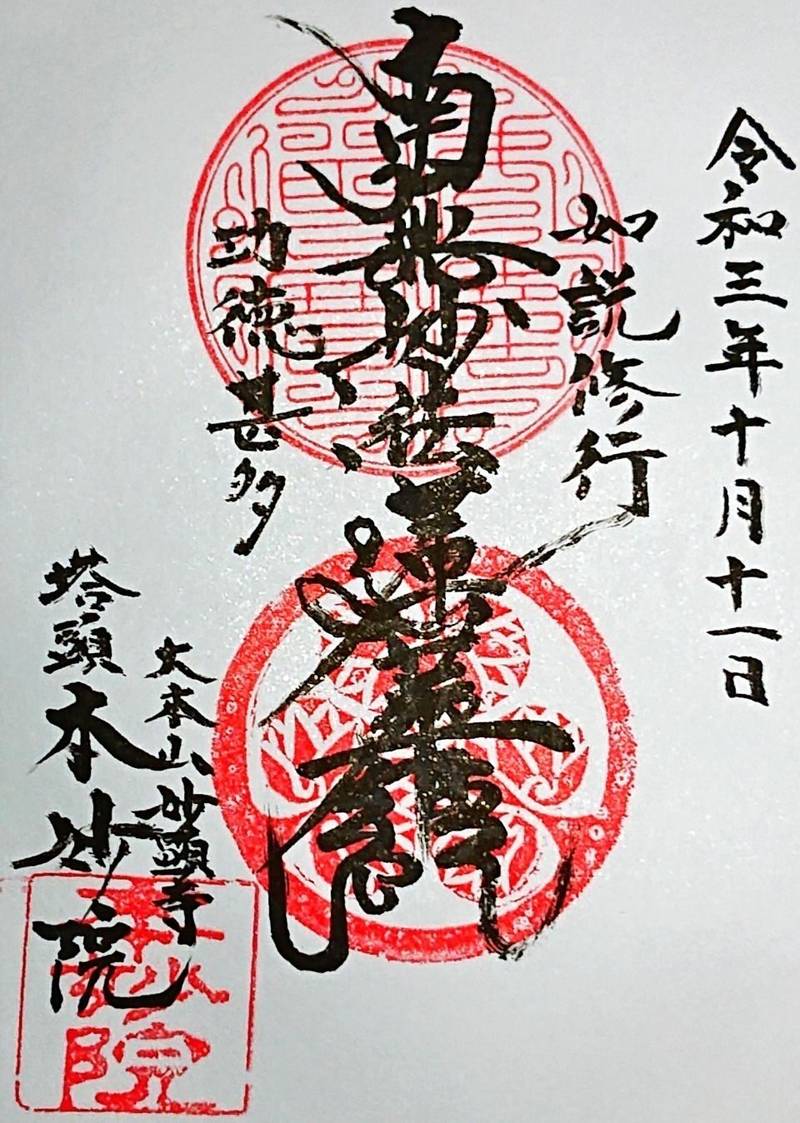 令和三年十月十一日
如説修行
南無妙法蓮華経
功徳甚多
大本山妙顕寺
塔頭本妙院